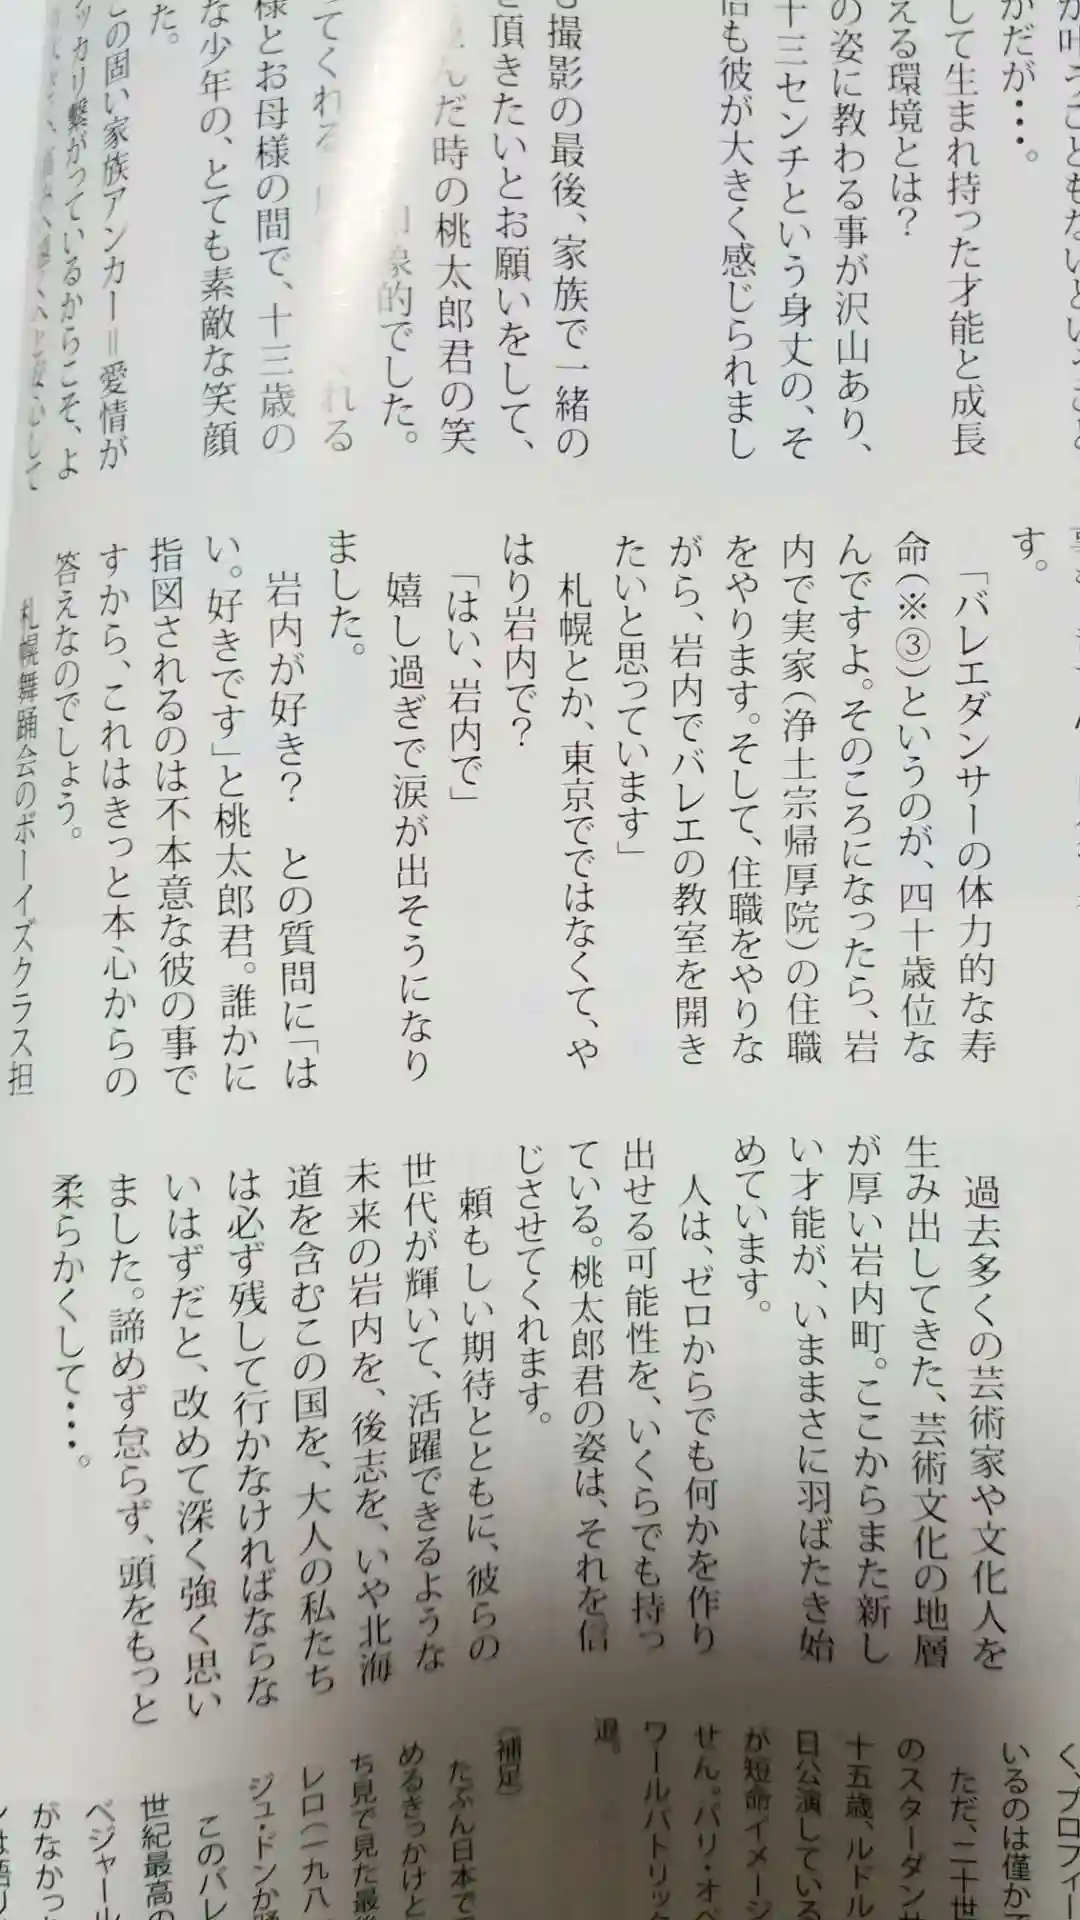 がだが・・・。
して生まれ持った才能と成長
える環境とは？
の姿に教わる事が沢山あり、
十三センチという身丈の、そ
倍も彼が大きく感じられまし
撮影の最後、家族で一緒の
頂きたいとお願いをして、
んだ時の桃太郎君の笑
象的でした。
てくれる
れる
様とお母様の間で、十三歳の
な少年の、とても素敵な笑顔
た。
この固い家族アンカー＝愛情が
ッカリ繋がっているからこそ、よ
心して
す。
「バレエダンサーの体力的な寿
命（※③）というのが、四十歳位な
んですよ。そのころになったら、岩
内で実家（浄土宗帰厚院）の住職
をやります。そして、住職をやりな
がら、岩内でバレエの教室を開き
たいと思っています」
札幌とか、東京でではなくて、や
はり岩内で？
「はい、岩内で」
嬉し過ぎで涙が出そうになり
ました。
岩内が好き？　との質問に「は
い。好きです」と桃太郎君。誰かに
指図されるのは不本意な彼の事で
すから、これはきっと本心からの
答えなのでしょう。
札幌舞踊会のボーイズクラス担
過去多くの芸術家や文化人を
生み出してきた、芸術文化の地層
が厚い岩内町。ここからまた新し
い才能が、いままさに羽ばたき始
めています。
人は、ゼロからでも何かを作り
出せる可能性を、いくらでも持っ
ている。桃太郎君の姿は、それを信
じさせてくれます。
頼もしい期待とともに、彼らの
世代が輝いて、活躍できるような
未来の岩内を、後志を、いや北海
道を含むこの国を、大人の私たち
は必ず残して行かなければならな
いはずだと、改めて深く強く思い
ました。諦めず怠らず、頭をもっと
柔らかくして・・・。
く、プロフィー
いるのは僅かで
ただ、二十世
のスターダンサ
十五歳、ルドル
日公演している
が短命イメージ
せん。パリ・オペ
ワールパトリック
退。
（補足）
たぶん日本で
めるきっかけと
ち見で見た最後
レロ（一九八
ジュ・ドンが
このバレ
世紀最高の
ベジャール
がなかっ